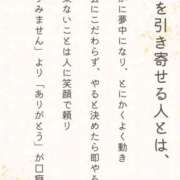 を引き寄せる人とは、
かに夢中になり、とにかくよく動き
にこだわらず、やると決めたら即や
来ないことは人に笑顔で頼り
みません」より「ありがとう」が口癖